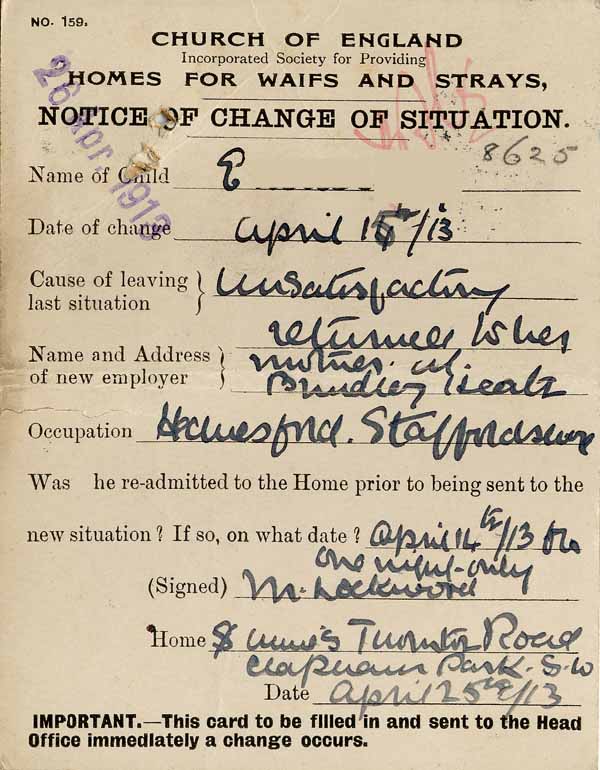 NO. 159.
CHURCH OF ENGLAND
Incorporated Society for Providing
HOMES FOR WAIFS AND STRAYS,
NOTICE OF CHANGE OF SITUATION.
26 Apr. 1913
8625
Name of Child E
Date of change April 15th/13
Cause of leaving last situation } Unsatisfactory
returned to her
Name and Address of new employer } mother at
Brindley Heath
Occupation Hednesford. Staffordshire
Was he re-admitted to the Home prior to being sent to the
new situation? If so, on what date? April 14th/13 for
one night only
(Signed) M. Lockwood
Home S Anne's Thornton Road
Clapham Park. S.W
Date April 25th/13
IMPORTANT.—This card to be filled in and sent to the Head
Office immediately a change occurs.